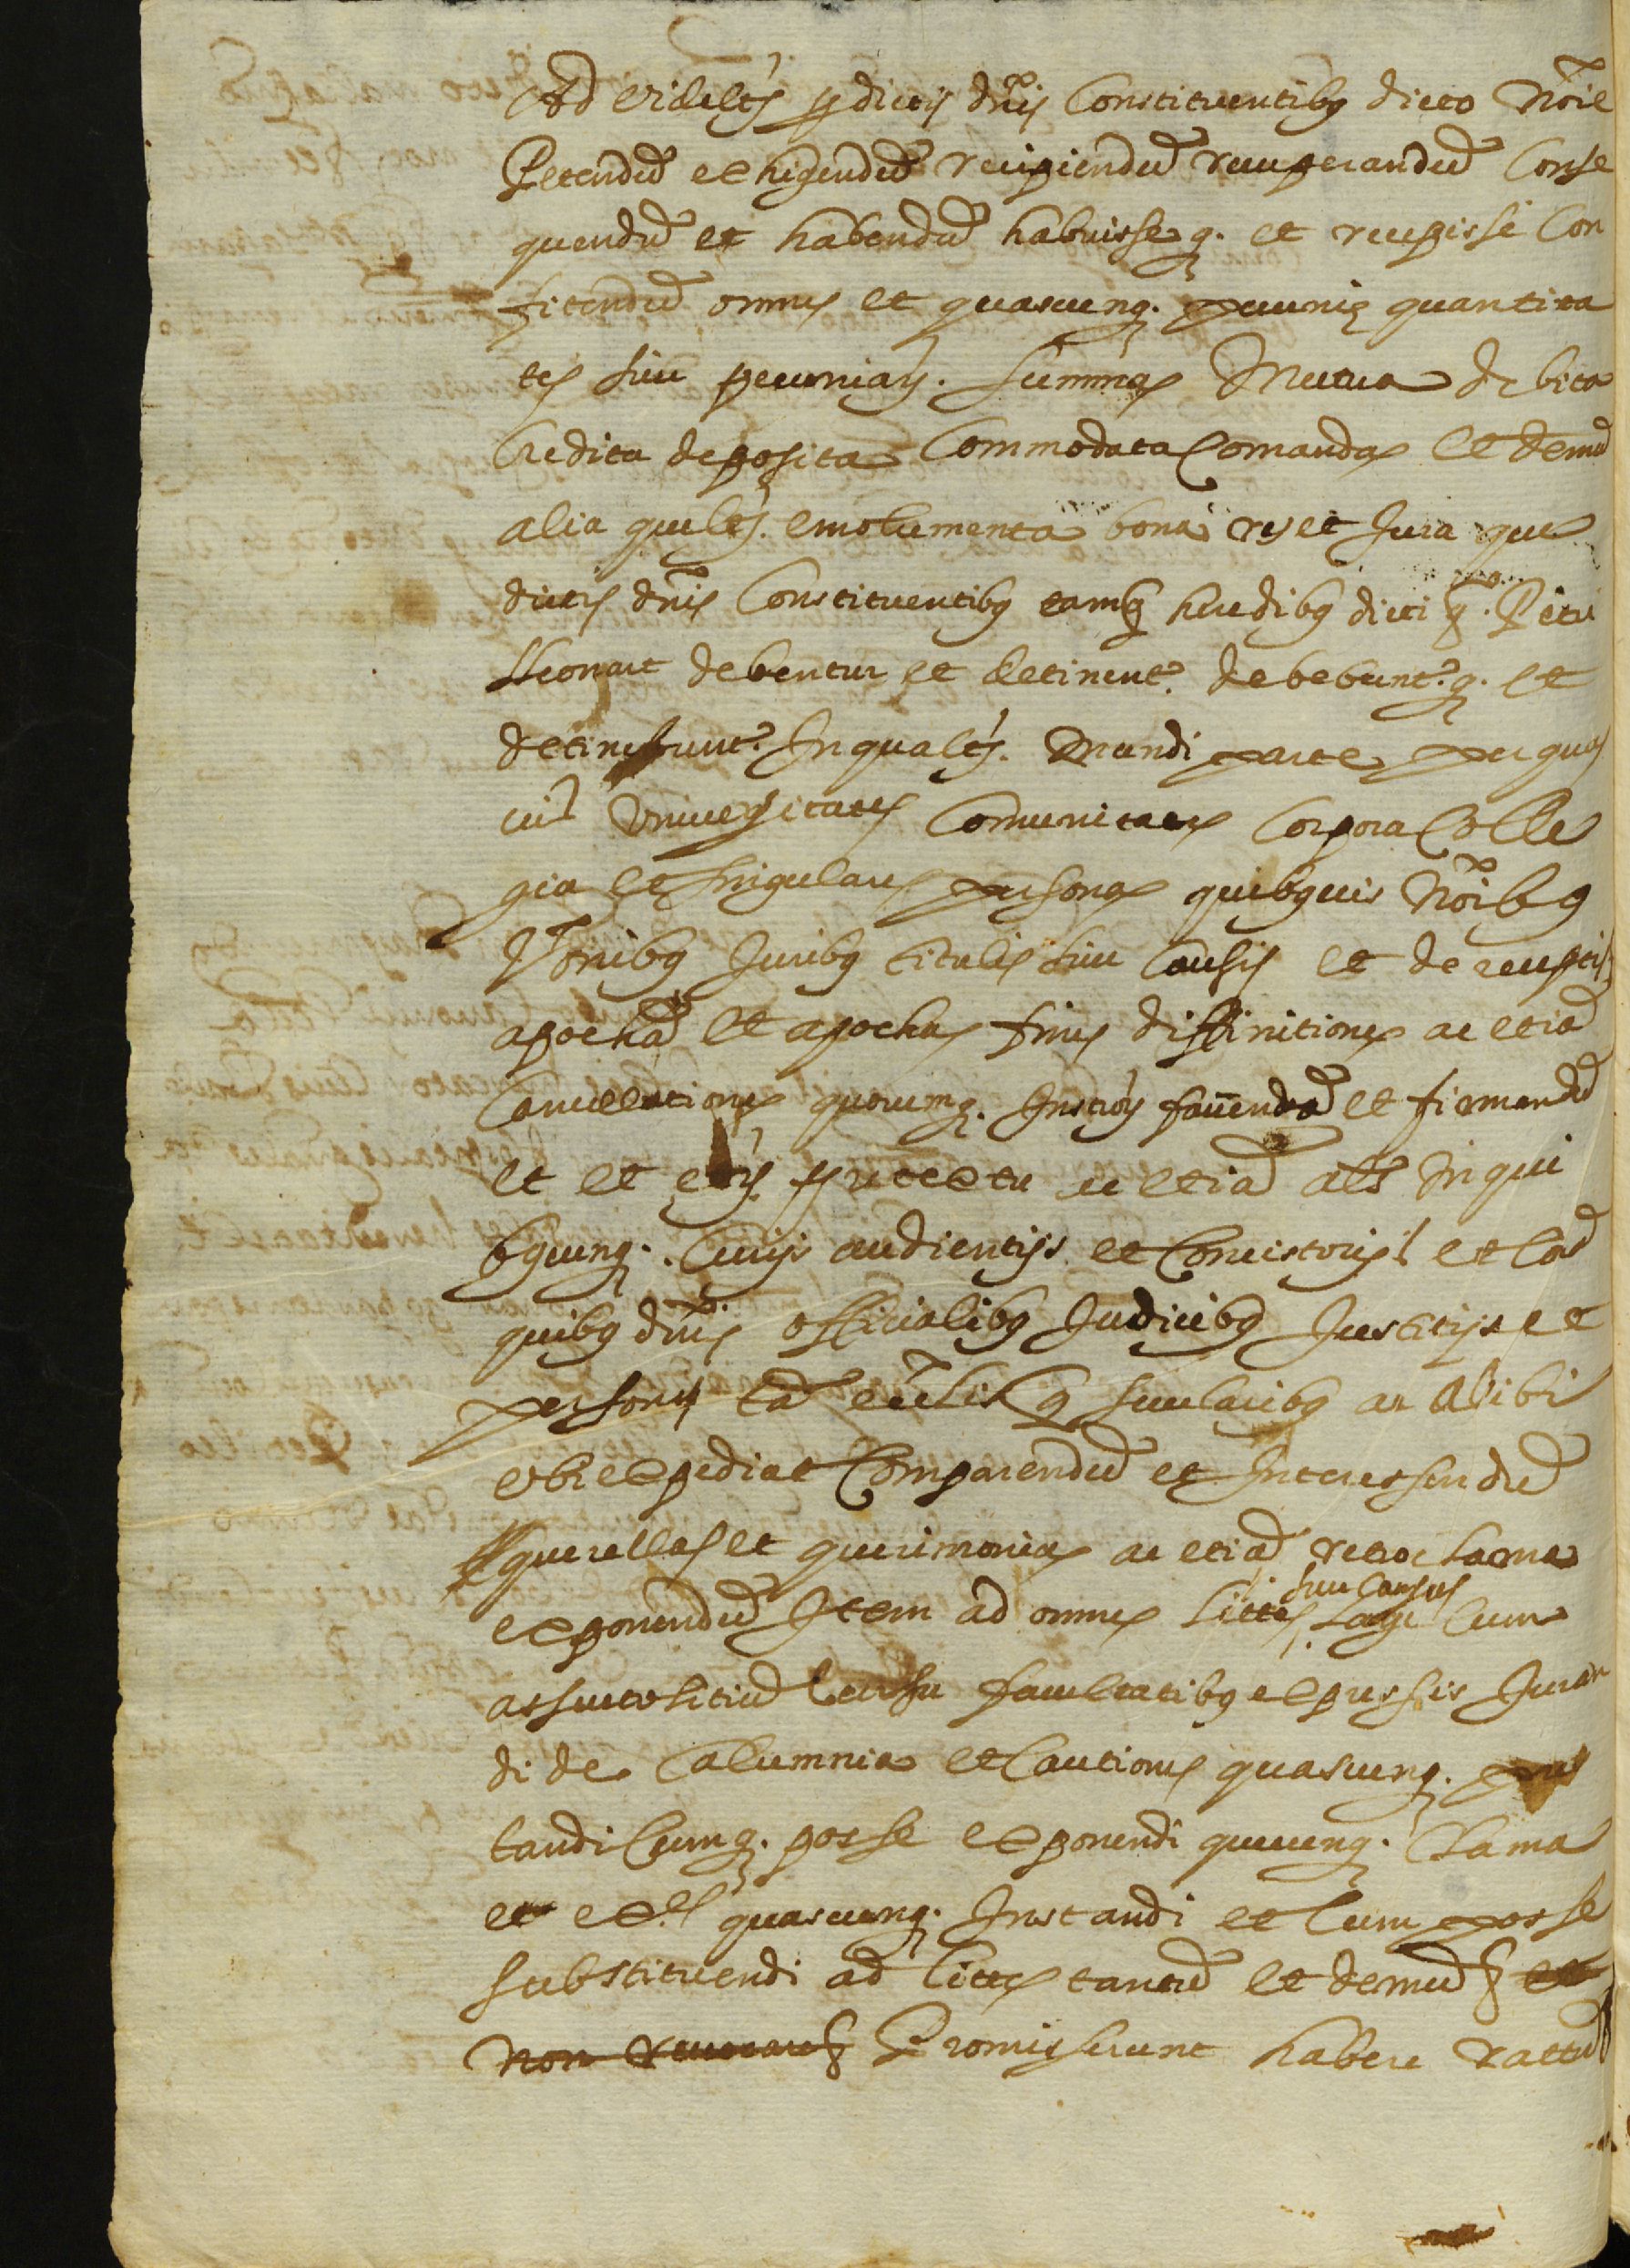 Ad videlt̃ pdictis dñis Constituentibꝯ dicto nõie
Petendũ exhigendũ recipiendũ recuperandũ Conse
quendũ et habendũ habuisseq. et recepisse Con
fitendũ omnes et quascunq. pecuniȩ quantita
tes sive pecuniaꝝ. summas Mutua debita
Credita deposita Commodata Comandas et demũ
alia quelt̃. emolumenta bona res et Jura que
dictis dñis Constituentibꝯ tamq̃ heredibꝯ dicti q̃. Petri
lleonart debentur et detinent̃. debebunt̃.q. et
detinebunt̃. In qualt̃. Mundi parte per quos
vis Universitates Comunitates Corpora Colle
gia et singulares personas quibꝯvis nõibꝯ
Jonibꝯ Juribꝯ titulis sive causis et de receptis
apochã et apochas fines diffinitiones ac etiã
Cancellationes quorumq. Instroꝝ faciendũ et firmandũ
et et
ac etiã als In qui
bꝯcunq. Curijs audientijs et Concistorijs et Corã
quibꝯ dñis officialibꝯ Judicibꝯ Justitijs et
personis tã eccl̃is q̃ secularibꝯ ac Alibi
ubi expediat Comparendũ et Interessendũ
querellas et querimonias ac etiã retroclama
exponendũ Item ad omnes littes sive causas large Cum
assueto litiũ Cursu facultatibꝯ expressis Juran
di de Calumnia et Cautiones quascunq. pres
tandi Cumq. posse exponendi quecunq. Clama
et exes quascunq. Instandi et Cum posse
substituendi ad lites tantũ et demũ et
non revocare Promisserunt habere rattũ